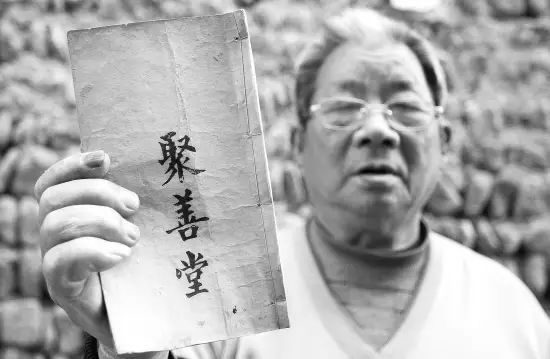 聚善堂